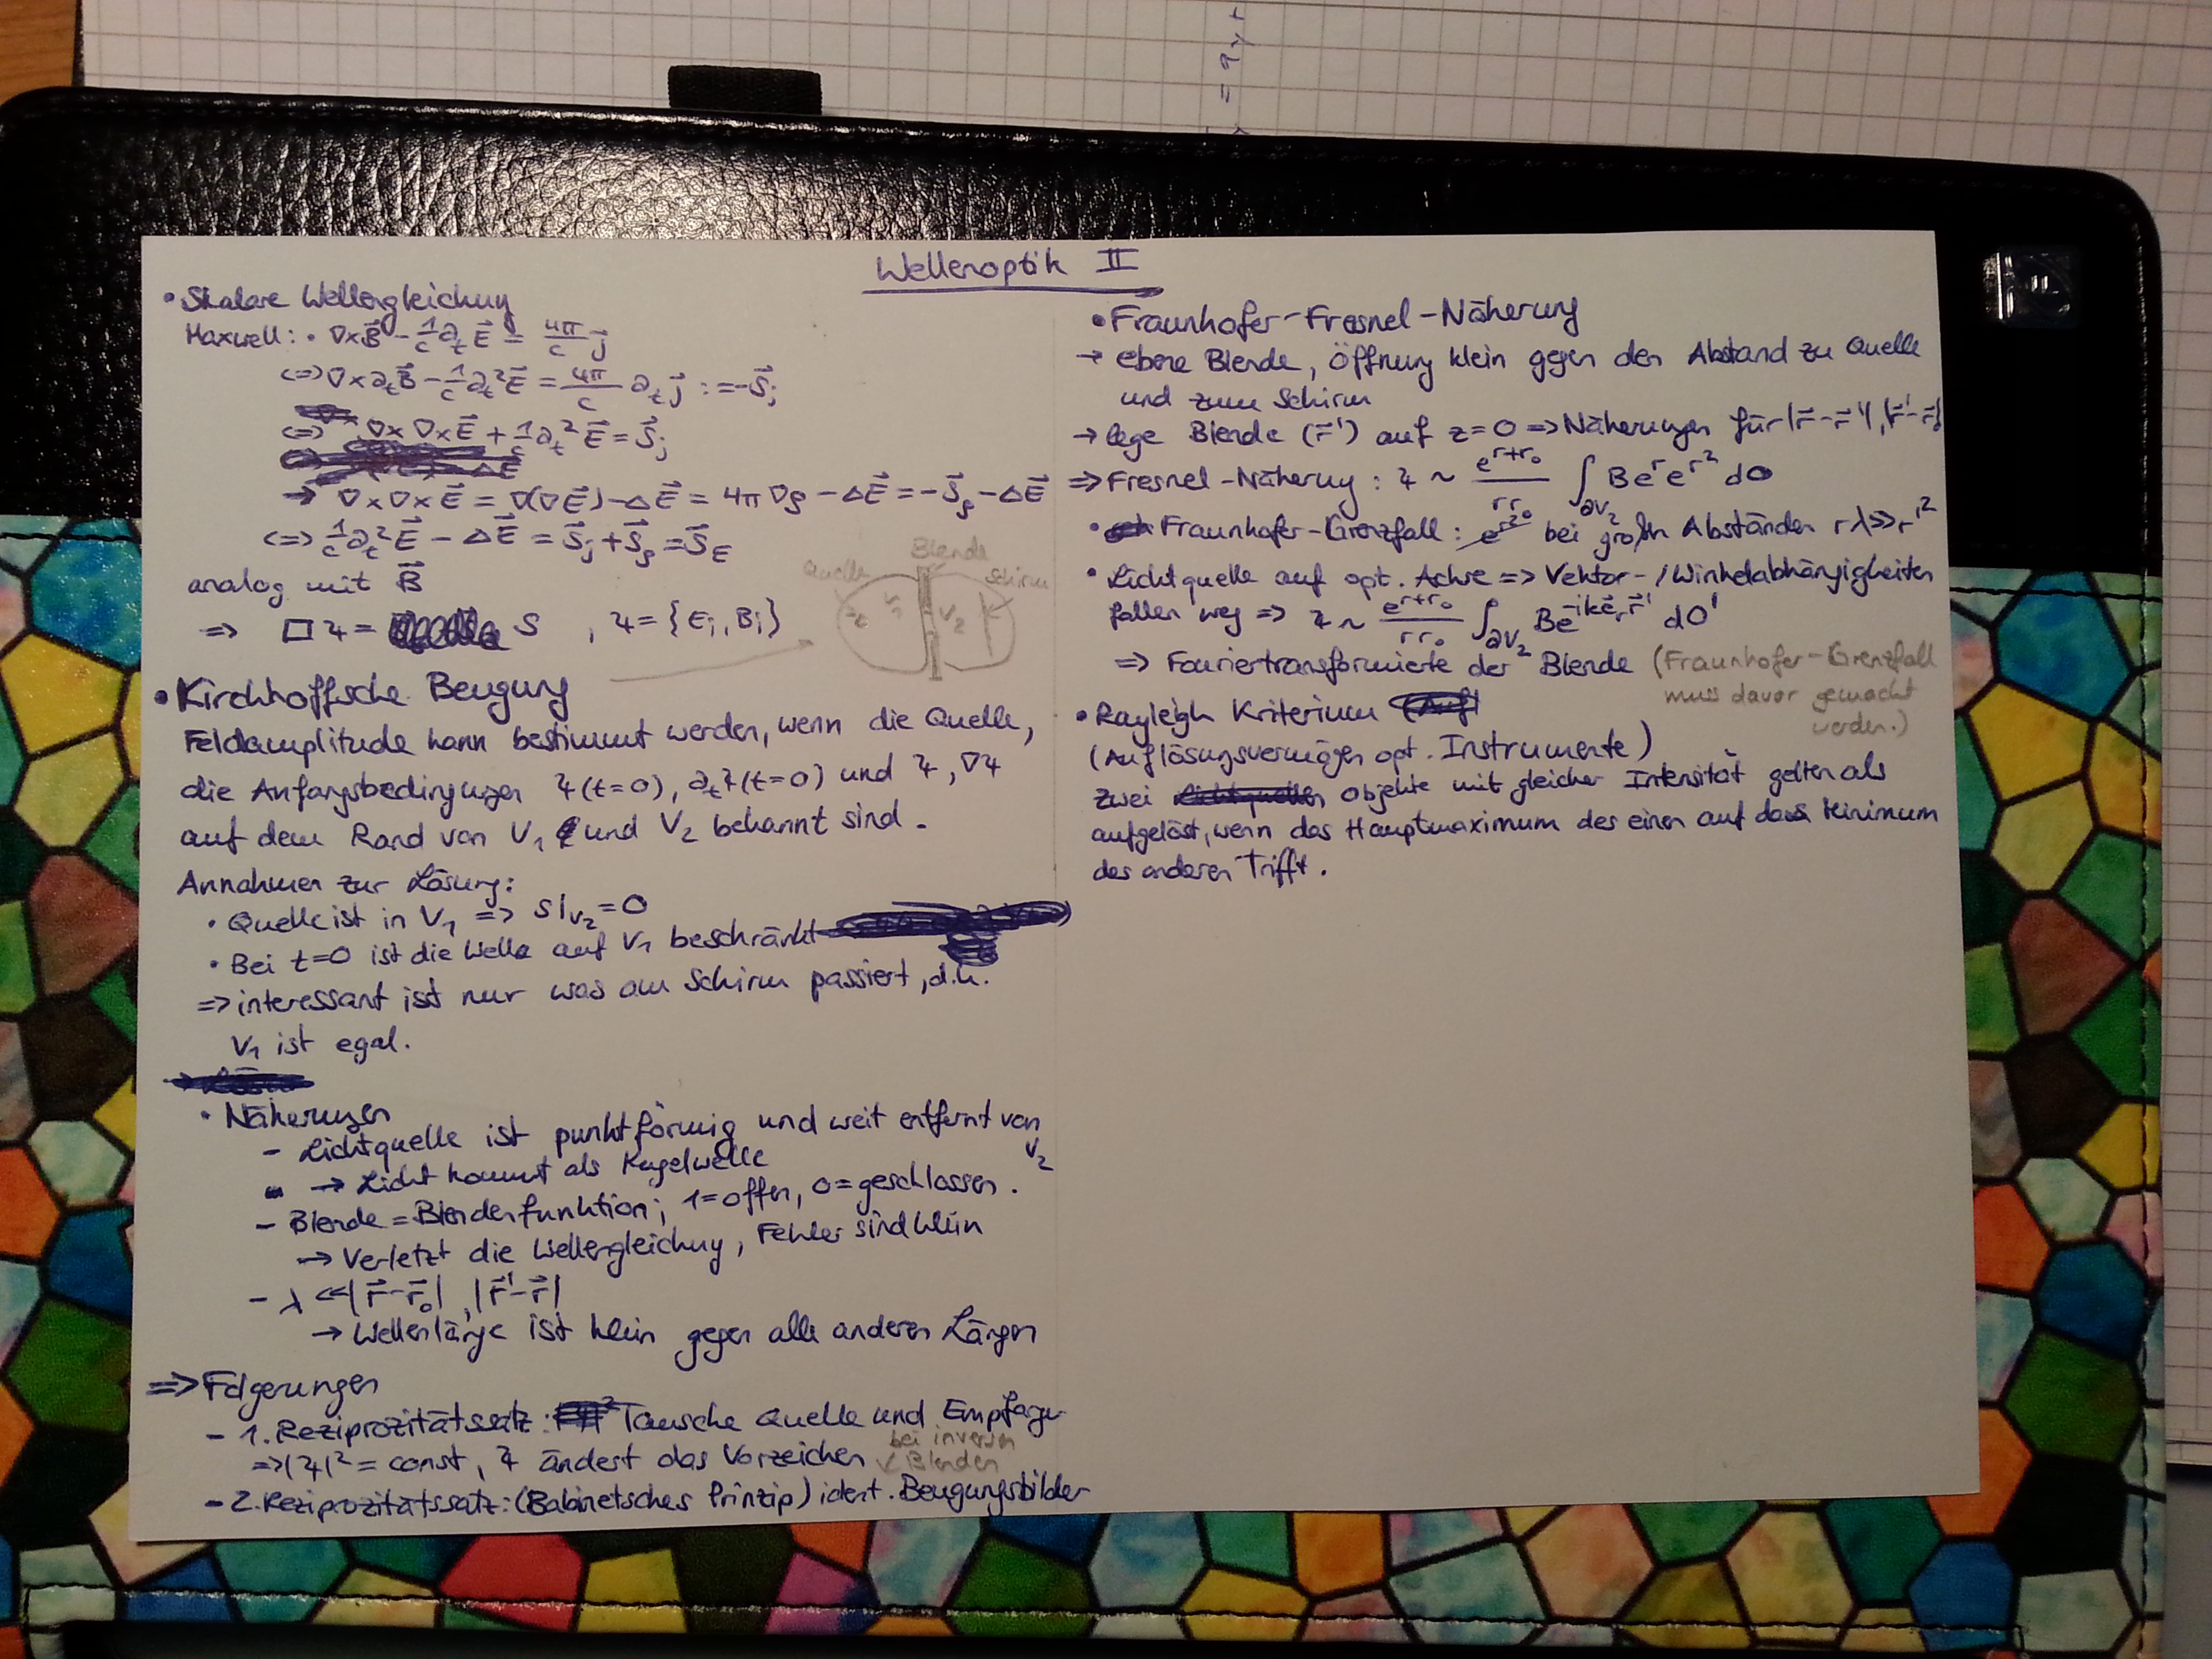 Wellenoptik II
• Skalare Wellengleichung
Maxwell: • ∇×B⃗ - 1/c ∂_t E⃗ = 4π/c j⃗
<=> ∇×∂_t B⃗ - 1/c ∂_t² E⃗ = 4π/c ∂_t j⃗ := -S⃗_j
<=> ∇×∇×E⃗ + 1/c ∂_t² E⃗ = S⃗_j
→ ∇×∇×E⃗ = ∇(∇E⃗) - ΔE⃗ = 4π∇ρ - ΔE⃗ = -S⃗_ρ - ΔE⃗
<=> 1/c ∂_t² E⃗ - ΔE⃗ = S⃗_j + S⃗_ρ = S⃗_E
analog mit B⃗
=> □Ψ = S , Ψ = {E_i, B_i}
Quelle
Blende
Schirm
V_1
V_2
• Kirchhoffsche Beugung
Feldamplitude kann bestimmt werden, wenn die Quelle,
die Anfangsbedingungen Ψ(t=0), ∂_tΨ(t=0) und Ψ, ∇Ψ
auf dem Rand von V_1 und V_2 bekannt sind.
Annahmen zur Lösung:
• Quelle ist in V_1 => S|_V_2 = 0
• Bei t=0 ist die Welle auf V_1 beschränkt
=> interessant ist nur was am Schirm passiert, d.h.
V_1 ist egal.
• Näherungen
- Lichtquelle ist punktförmig und weit entfernt von V_2
→ Licht kommt als Kugelwelle
- Blende = Blendenfunktion; 1=offen, 0=geschlossen.
→ Verletzt die Wellengleichung, Fehler sind klein
- λ << |r⃗-r⃗_0|, |r⃗'-r⃗|
→ Wellenlänge ist klein gegen alle anderen Längen
=> Folgerungen
- 1. Reziprozitätssatz: Tausche Quelle und Empfänger
=> |Ψ|² = const, Ψ ändert das Vorzeichen
bei inversen
Blenden
- 2. Reziprozitätssatz: (Babinetsches Prinzip) ident. Beugungsbilder
• Fraunhofer-Fresnel-Näherung
→ ebene Blende, Öffnung klein gegen den Abstand zu Quelle
und zum Schirm
→ lege Blende (r⃗') auf z=0 => Näherungen für |r⃗-r⃗'|, |r⃗'-r⃗_0|
=> Fresnel-Näherung: Ψ ~ e^(r+r_0)/(r r_0) ∫_∂V_2 B e^r e^(r²) dO
• Fraunhofer-Grenzfall: e^(r²) bei großen Abständen rλ>>r'²
• Lichtquelle auf opt. Achse => Vektor-/Winkelabhängigkeiten
fallen weg => Ψ ~ e^(r+r_0)/(r r_0) ∫_∂V_2 B e^(-ike⃗_r r⃗') dO'
=> Fouriertransformierte der Blende (Fraunhofer-Grenzfall
muss davor gemacht
werden.)
• Rayleigh Kriterium
(Auflösungsvermögen opt. Instrumente)
Zwei Objekte mit gleicher Intensität gelten als
aufgelöst, wenn das Hauptmaximum des einen auf das Minimum
des anderen Trifft.